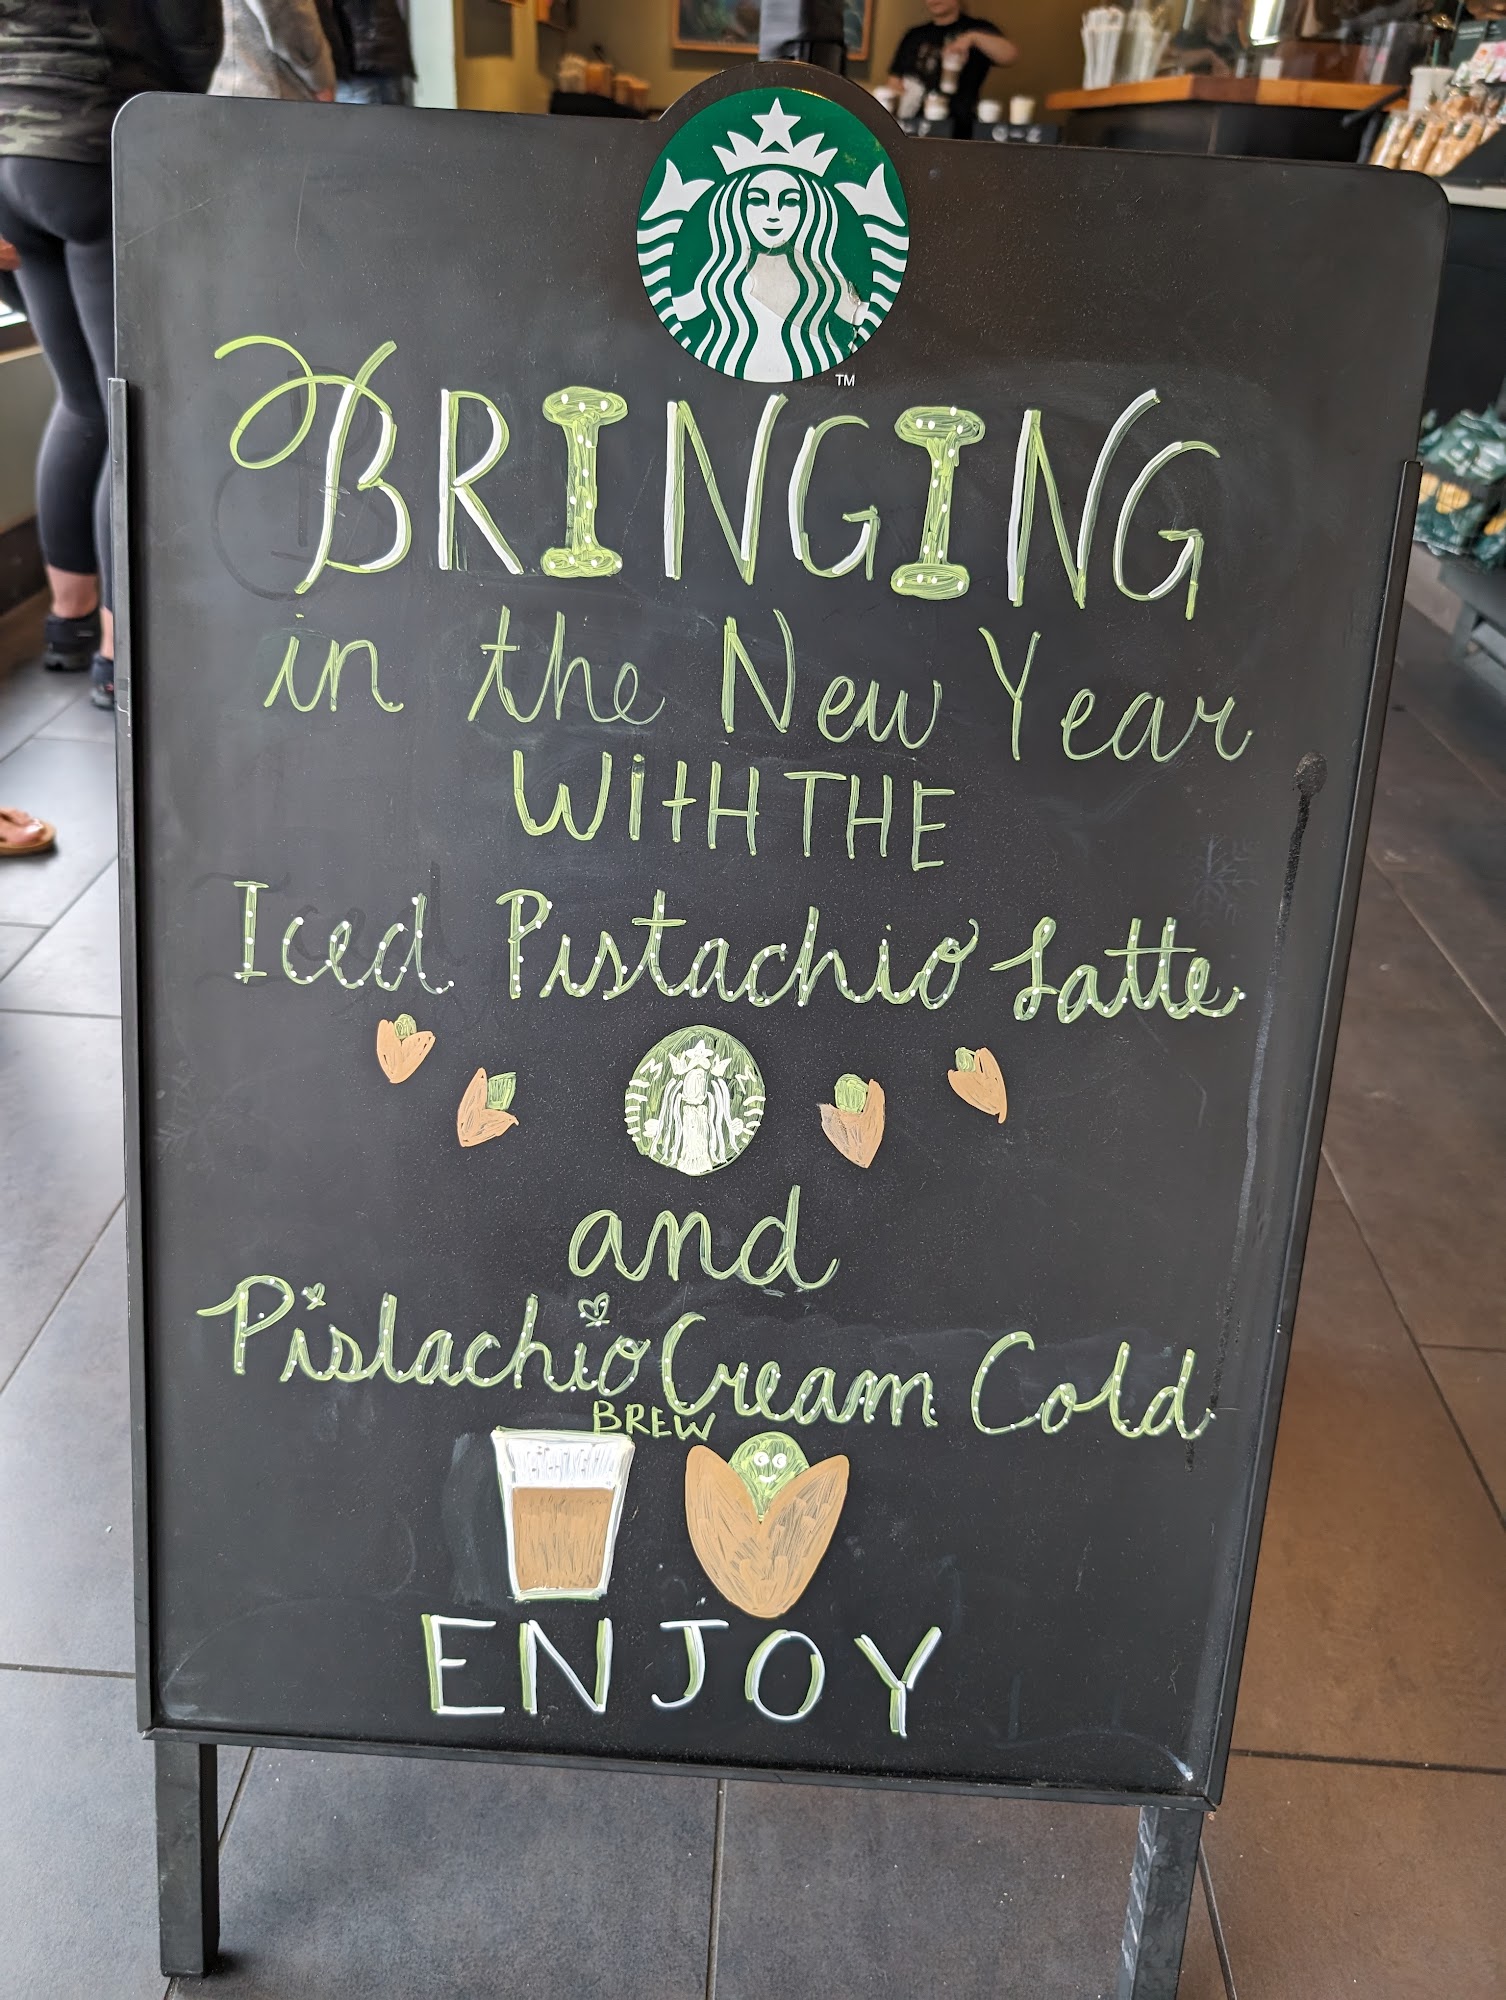 TM
BRINGING
in the New Year
WITH THE
Iced Pistachio Latte
and
Pistachio Cream Cold
BREW
ENJOY